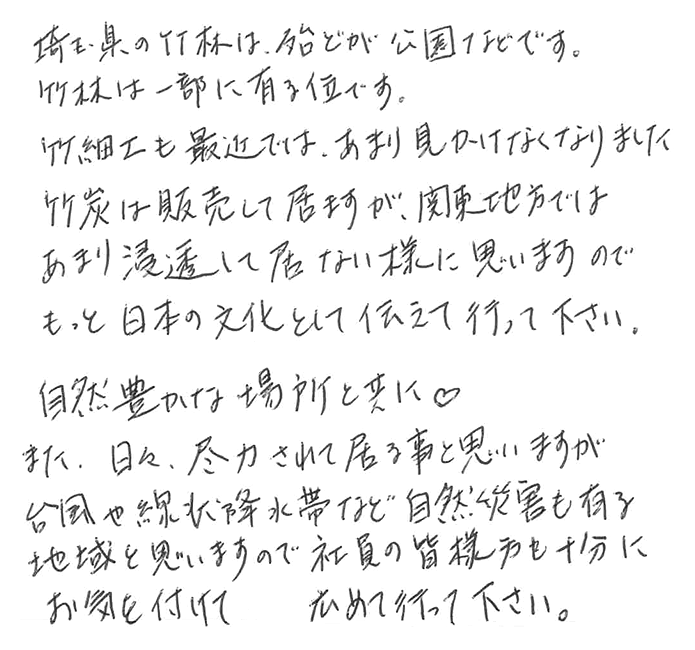 埼玉県の竹林は、殆どが公園などです。
竹林は一部に有る位です。
竹細工も最近では、あまり見かけなくなりました
竹炭は販売して居ますが、関東地方では
あまり浸透して居ない様に思いますので
もっと日本の文化として伝えて行って下さい。
自然豊かな場所と共に♡
また、日々、尽力されて居る事と思いますが
台風や線状降水帯など自然災害も有る
地域と思いますので社員の皆様方も十分に
お気を付けて 広めて行って下さい。